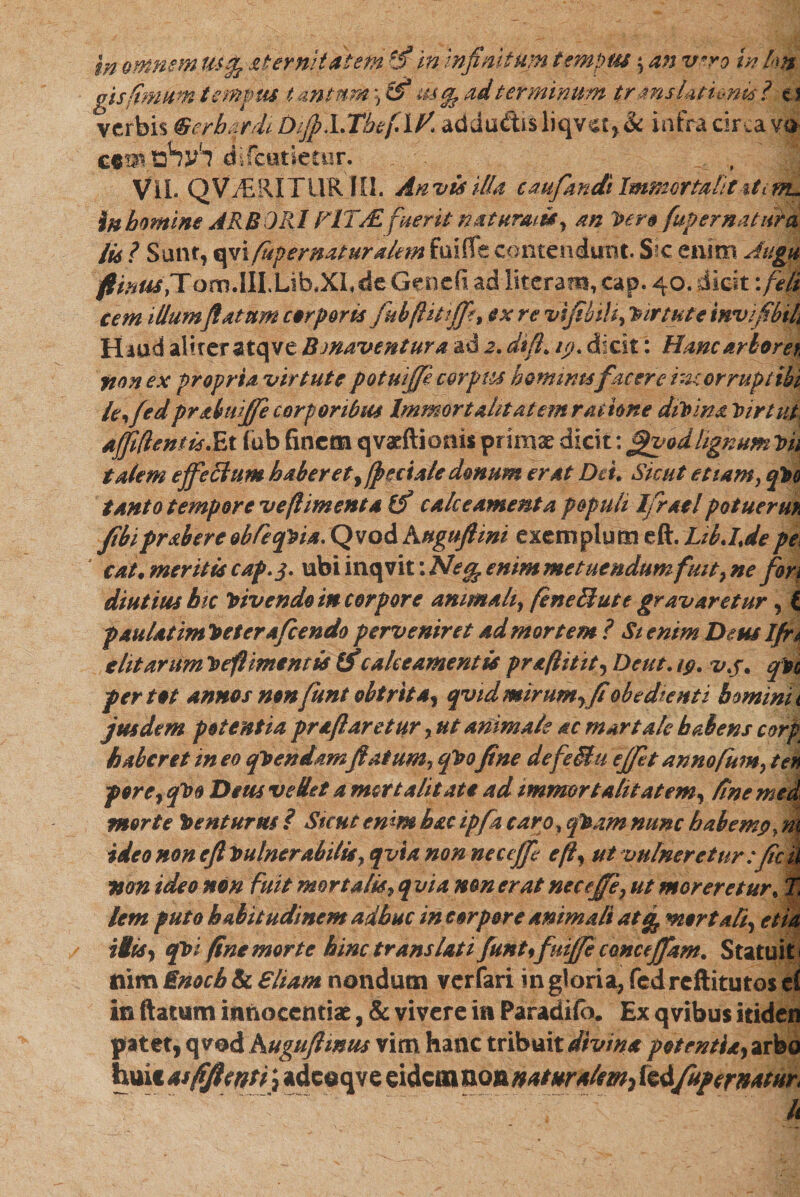 in omnem usq; æternitatem & in infinitum tempus; an vero in lon
gissimum tempus tantum; & usq; ad terminum translationis?
verbis Gerhardi Disp.I.Thes.IV. adductis liqvet, & infra circa vo
cem לעלם discutietur.
VII. QVÆRITUR III. An vis illa causandi Immortalitatem
in homine ARBORI VITÆ fuerit naturalis, an vero supernatura
lis? Sunt, qvi supernaturalem fuisse contendunt. Sic enim Augu
stinus, Tom.III.Lib.XI. de Genesi ad literam, cap. 40. dicit: feli
cem illum statum corporis substitisse, ex re visibili, virtute invisibili
Haud aliter atqve Bonaventura ad 2. dist. 19. dicit: Hanc arborem
non ex propria virtute potuisse corpus hominis facere incorruptibi
le, sed præbuisse corporibus Immortalitatem ratione divinæ virtut
assistentis. Et sub finem qvæstionis primæ dicit: Qvod lignum vi
talem effectum haberet, speciale donum erat Dei. Sicut etiam, qvo
tanto tempore vestimenta & calceamenta populi Israel potuerun
sibi præbere obseqvia. Qvod Augustini exemplum est. Lib.I. de pe
cat. meritis cap. 3. ubi inqvit: Neq; enim metuendum fuit, ne fort
diutius hic vivendo in corpore animali, senectute gravaretur, &
paulatim veterascendo perveniret ad mortem? Si enim Deus Isra
elitarum vestimentis & calceamentis præstitit, Deut. 19. v.5. qvod
per tot annos non sunt obtrita, qvid mirum, si obedienti homini e
jusdem potentia præstaretur, ut animale ac mortale habens corp
haberet in eo qvendam statum, qvo sine defectu esset annosum, tem
pore, qvo Deus vellet a mortalitate ad immortalitatem, sine med
morte venturus? Sicut enim hæc ipsa caro, qvam nunc habemq, n
ideo non est vulnerabilis, qvia non necesse est, ut vulneretur: sic il
non ideo non fuit mortalis, qvia non erat necesse, ut moreretur. T
lem puto habitudinem adhuc in corpore animali atq; mortali, etia
illis, qvi sine morte hinc translati sunt, fuisse concessam. Statuit
nim Enoch & Eliam nondum versari in gloria, sed restitutos es
in statum innocentiæ, & vivere in Paradiso. Ex qvibus itiden
patet, qvod Augustinus vim hanc tribuit divinæ potentiæ, arbo
huic assistenti; adeoqve eidem non naturalem, sed supernatur.